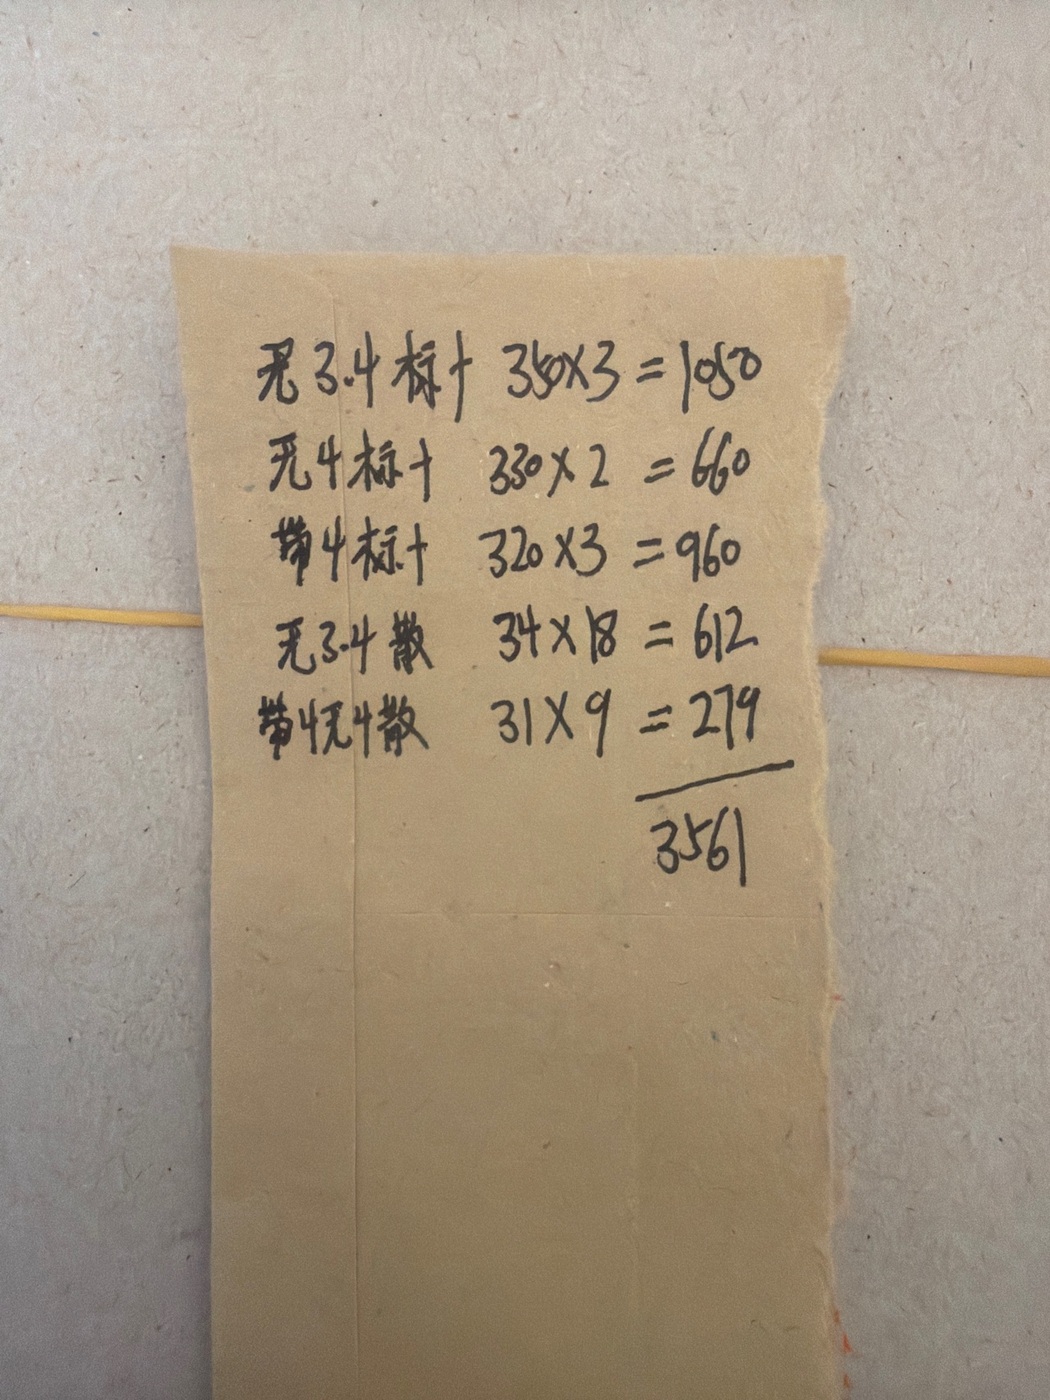 无3.4标十 350×3=1050
无4标十 330×2=660
带4标十 320×3=960
无3.4散 34×18=612
带4无4散 31×9=279
3561